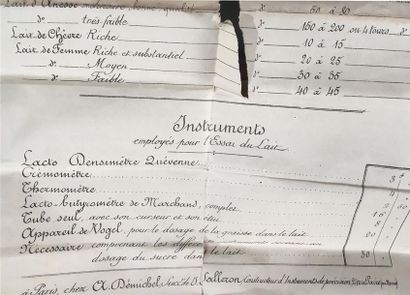 Lait d'Anesse ordinaire, bonne qualité d° 50 à 80
d° très faible d° 150 à 200 ou 4 tours d°
Lait de Chèvre Riche d° 10 à 15
Lait de Femme Riche et substantiel d° 20 à 25
d° Moyen d° 30 à 35
d° Faible d° 40 à 45
Instruments
employés pour l'Essai du Lait
Lacto Densimètre Quévenne 3
Crémomètre
Thermomètre
Lacto-butyromètre de Marchand, complet
Tube seul, avec son curseur et son étui
Appareil de Vogel, pour le dosage de la graisse dans le lait
Nécessaire comprenant les différents
dosage du sucre dans le lait 30
à Paris, chez A. Démichel Succr de Salleron, Constructeur d'Instruments de précision